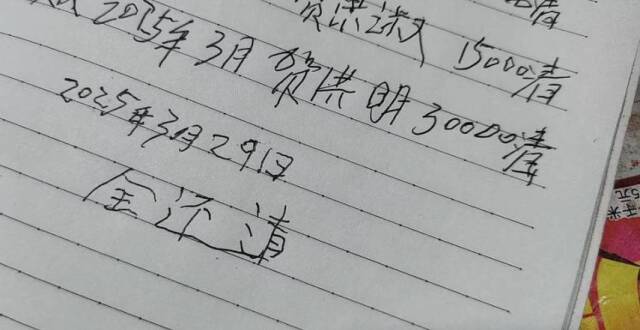 清
贺洪 15000清
2025年3月贺洪明30000清
2025年3月29日
全还清
千米
5元